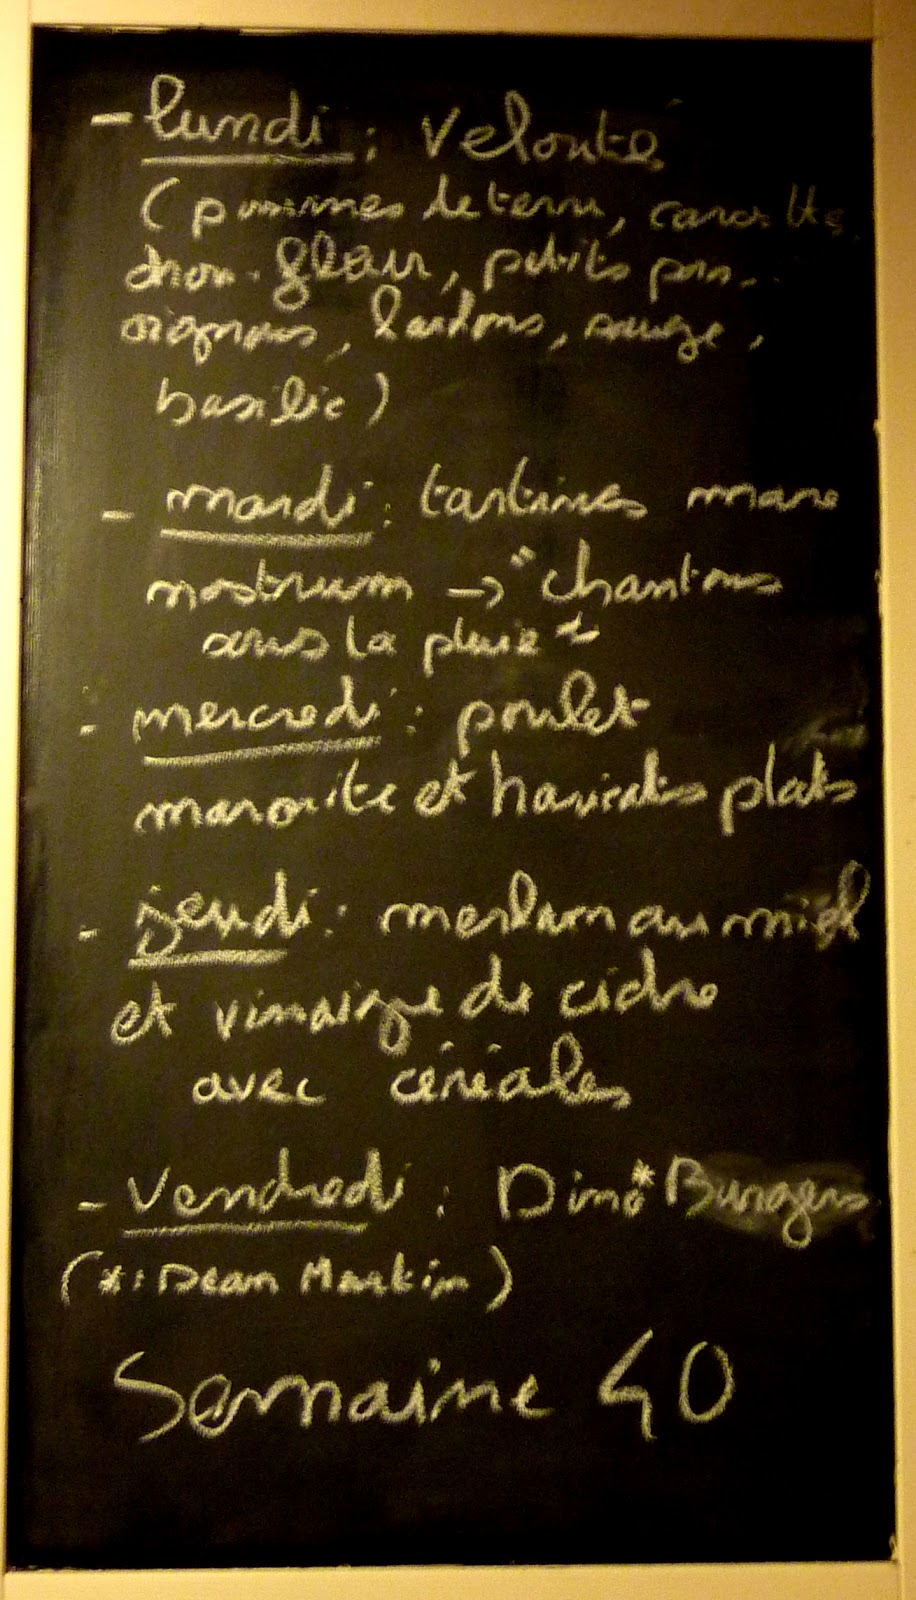 - lundi : velouté
(pommes de terre, carottes,
chou-fleur, petits pois,
oignons, lardons, sauge,
basilic)
- mardi : tartines mare
nostrum → "chantons
sous la pluie"
- mercredi : poulet
marmite et haricots plats
- jeudi : merlan au miel
et vinaigre de cidre
avec céréales
- Vendredi : Dino* Burgers
(*: Dean Martin)
Semaine 40